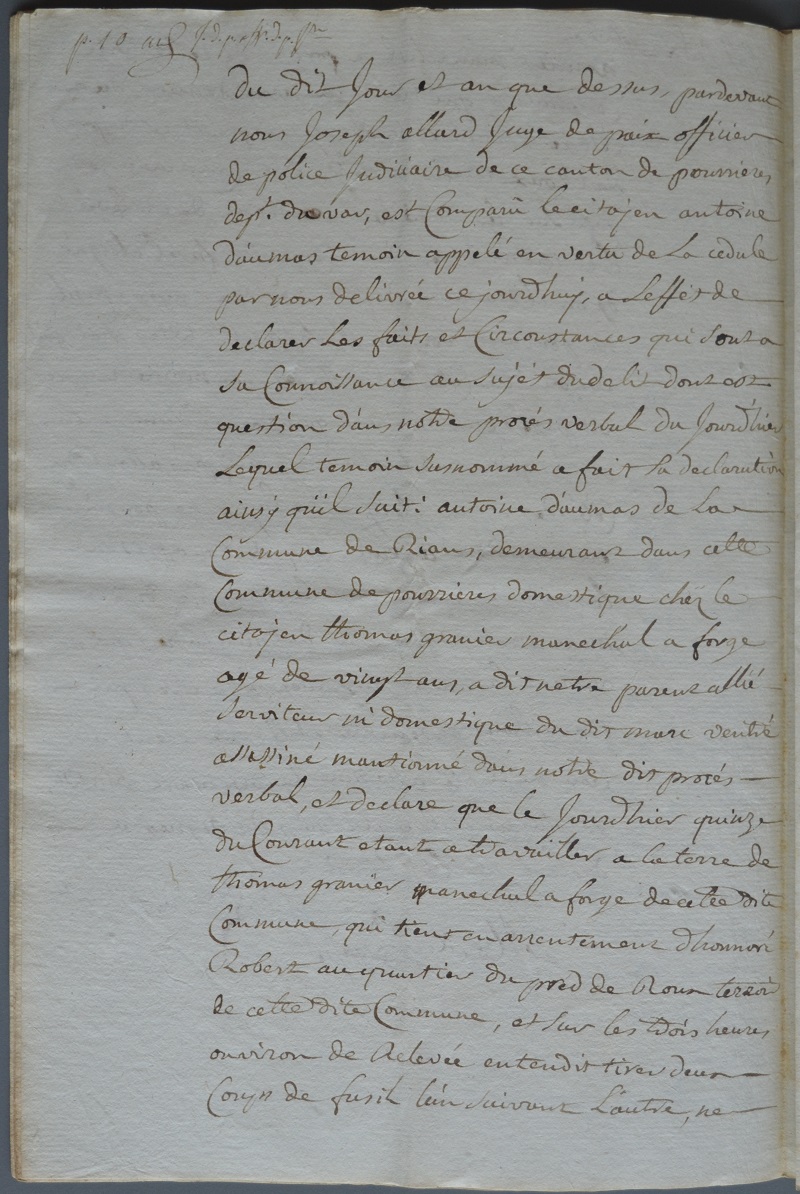 p. 10
du dit Jour et an que dessus, pardevant
nous Joseph allard Juge de paix officier
de police Judiciaire de ce canton de pourrieres
dept. du var, est Comparû le citoÿen antoine
d'aumas temoin appelé en vertu de La cedule
par nous delivrée ce jourdhuÿ, a Leffét de
declarer Les faits et Circonstances qui sont a
sa Connoissance au sujét du delit dont est
question dans notre procés verbal du Jourd'hier
Lequel temoin susnommé a fait sa declaration
ainsÿ qu'il suit: antoine d'aumas de La
Commune de Rians, demeurant dans cette
Commune de pourrieres domestique chéz le
citoÿen thomas granier marechal a forge
agé de vingt ans, a dit netre parent allié
serviteur ni domestique du dit marc ventré
assassiné mantionné dans notre dit procés
verbal, et declare que le Jourdhier quinze
du Courant etant a travailler a la terre de
thomas granier marechal a forge de cette dite
Commune, qui tient en arrentement d'honnoré
Robert au quartier du pred de Roux terroir
de cette dite Commune, et sur les trois heures
environ de Relevée entendit tirer deux
Coups de fusil l'un suivant L'autre, ne